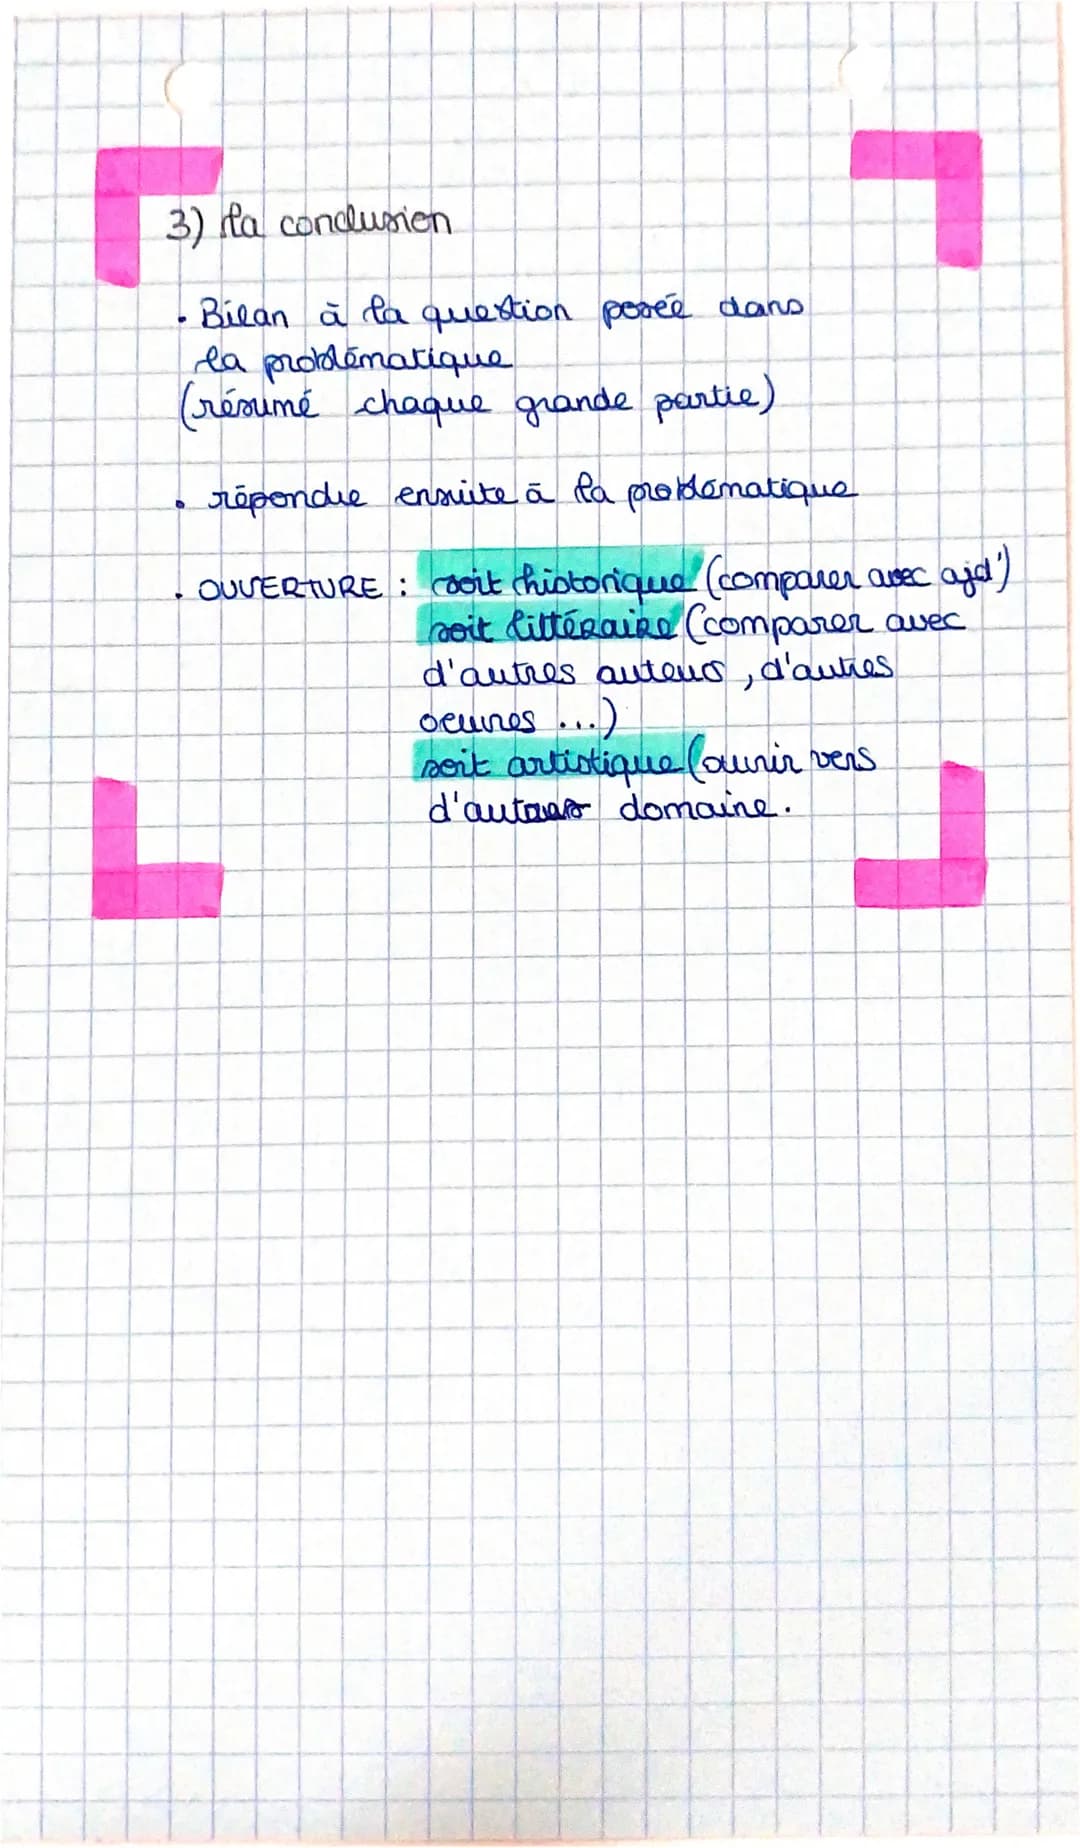 3) La conclusion
• Bilan à la question posée dans
la problématique
(résumé chaque grande partie)
• répondre ensuite à la problématique
• OUVERTURE : soit historique (comparer avec ajd')
soit littéraire (comparer avec
d'autres auteurs, d'autres
oeuvres ...)
soit artistique (ouvrir vers
d'autres domaine.